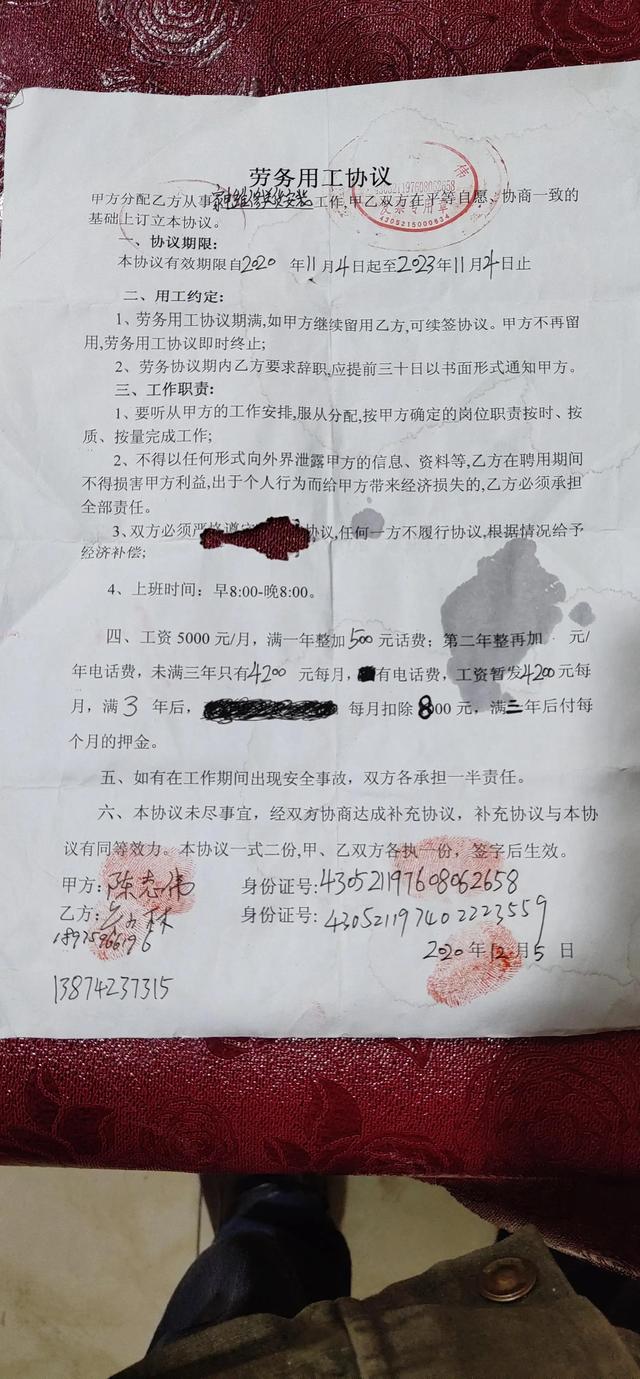 劳务用工协议
甲方分配乙方从事家电维修安装工作,甲乙双方在平等自愿、协商一致的
基础上订立本协议。
伟
430521197608062658
发票专用章
4305215000834
一、协议期限:
本协议有效期限自2020 年11月4日起至2023年11月4日止
二、用工约定:
1、劳务用工协议期满,如甲方继续留用乙方,可续签协议。甲方不再留
用,劳务用工协议即时终止;
2、劳务协议期内乙方要求辞职,应提前三十日以书面形式通知甲方。
三、工作职责:
1、要听从甲方的工作安排,服从分配,按甲方确定的岗位职责按时、按
质、按量完成工作;
2、不得以任何形式向外界泄露甲方的信息、资料等,乙方在聘用期间
不得损害甲方利益,出于个人行为而给甲方带来经济损失的,乙方必须承担
全部责任。
3、双方必须严格遵守协议,任何一方不履行协议,根据情况给予
经济补偿;
4、上班时间：早8:00-晚8:00。
四、工资 5000 元/月，满一年整加500元话费；第二年整再加 元/
年电话费，未满三年只有4200 元每月，有电话费，工资暂发4200元每
月，满 3 年后， 每月扣除800元，满三年后付每
个月的押金。
五、如有在工作期间出现安全事故，双方各承担一半责任。
六、本协议未尽事宜，经双方协商达成补充协议，补充协议与本协
议有同等效力。本协议一式二份,甲、乙双方各执一份，签字后生效。
甲方:陈志伟 身份证号:430521197608062658
乙方: 林 身份证号:430521197402223559
18975966196
2020年12月5日
13874237315